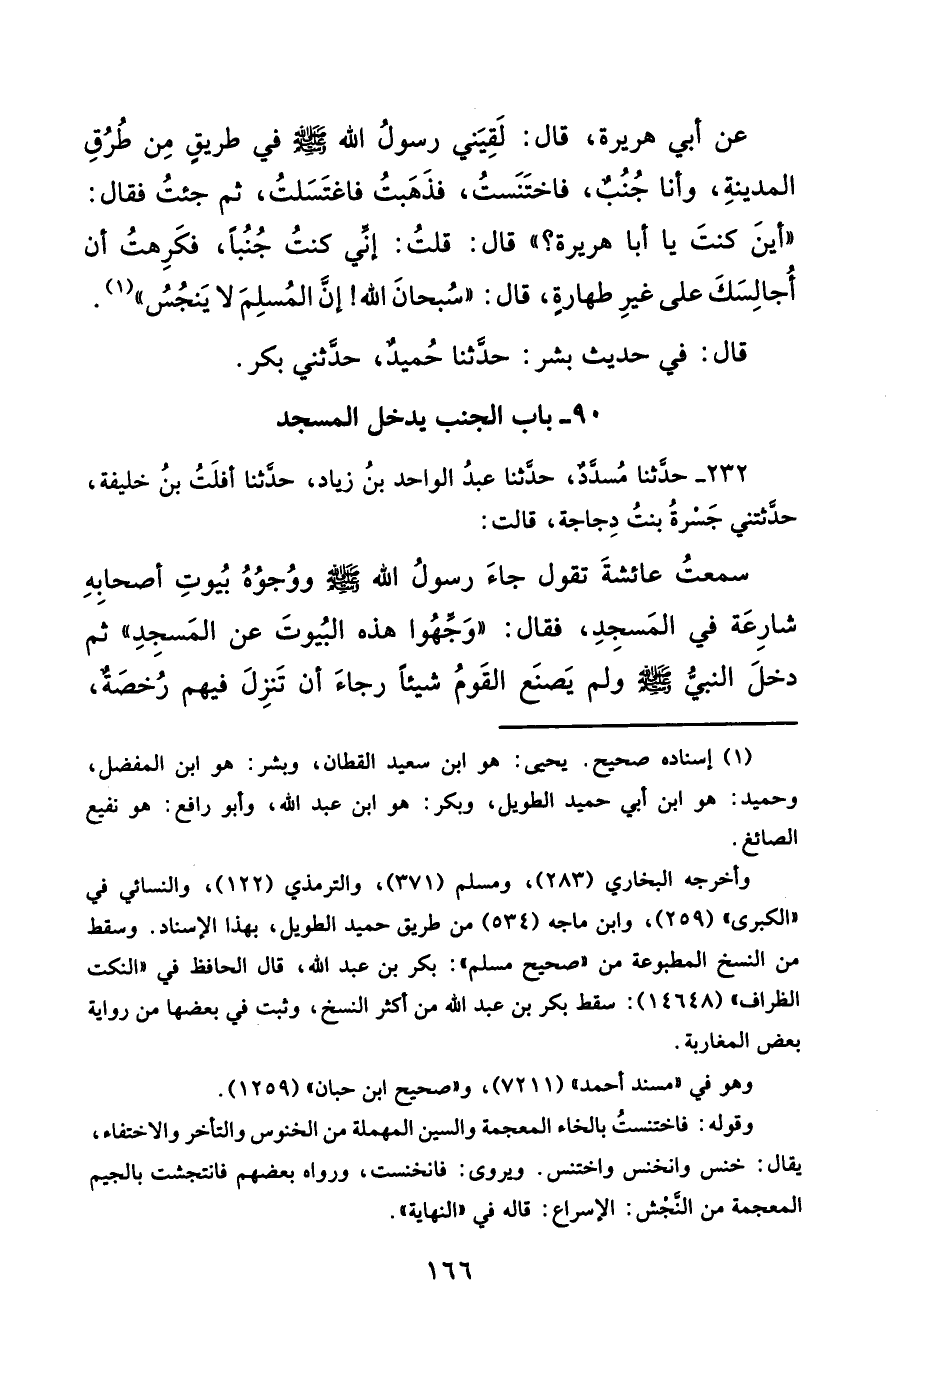 عن أبي هريرة، قال: لَقِيَني رسولُ الله ﷺ في طريقٍ مِن طُرُقِ
المدينةِ، وأنا جُنُبٌ، فاختَنَستُ، فذَهَبتُ فاغتَسَلتُ، ثم جئتُ فقال:
«أينَ كنتَ يا أبا هريرة؟» قال: قلتُ: إنِّي كنتُ جُنُباً، فكَرِهتُ أن
أُجالِسَكَ على غيرِ طهارةٍ، قال: «سُبحانَ الله! إنَّ المُسلِمَ لا يَنجُسُ»(١).
قال: في حديث بشر: حدَّثنا حُميدٌ، حدَّثني بكر.
٩٠ـ باب الجنب يدخل المسجد
٢٣٢ـ حدَّثنا مُسدَّدٌ، حدَّثنا عبدُ الواحد بنُ زياد، حدَّثنا أفلَتُ بنُ خليفة،
حدَّثتني جَسْرةُ بنتُ دِجاجة، قالت:
سمعتُ عائشةَ تقول جاءَ رسولُ الله ﷺ ووُجوُهُ بُيوتِ أصحابِهِ
شارِعَة في المَسجِدِ، فقال: «وَجِّهُوا هذه البُيوتَ عن المَسجِدِ» ثم
دخلَ النبيُّ ﷺ ولم يَصنَع القَومُ شيئاً رجاءَ أن تَنزِلَ فيهم رُخصَةٌ،
(١) إسناده صحيح. يحيى: هو ابن سعيد القطان، وبشر: هو ابن المفضل،
وحميد: هو ابن أبي حميد الطويل، وبكر: هو ابن عبد الله، وأبو رافع: هو نفيع
الصائغ.
وأخرجه البخاري (٢٨٣)، ومسلم (٣٧١)، والترمذي (١٢٢)، والنسائي في
«الكبرى» (٢٥٩)، وابن ماجه (٥٣٤) من طريق حميد الطويل، بهذا الإسناد. وسقط
من النسخ المطبوعة من «صحيح مسلم»: بكر بن عبد الله، قال الحافظ في «النكت
الظراف» (١٤٦٤٨): سقط بكر بن عبد الله من أكثر النسخ، وثبت في بعضها من رواية
بعض المغاربة.
وهو في «مسند أحمد» (٧٢١١)، و«صحيح ابن حبان» (١٢٥٩).
وقوله: فاختنستُ بالخاء المعجمة والسين المهملة من الخنوس والتأخر والاختفاء،
يقال: خنس وانخنس واختنس. ويروى: فانخنست، ورواه بعضهم فانتجشت بالجيم
المعجمة من النَّجْش: الإسراع: قاله في «النهاية».
١٦٦